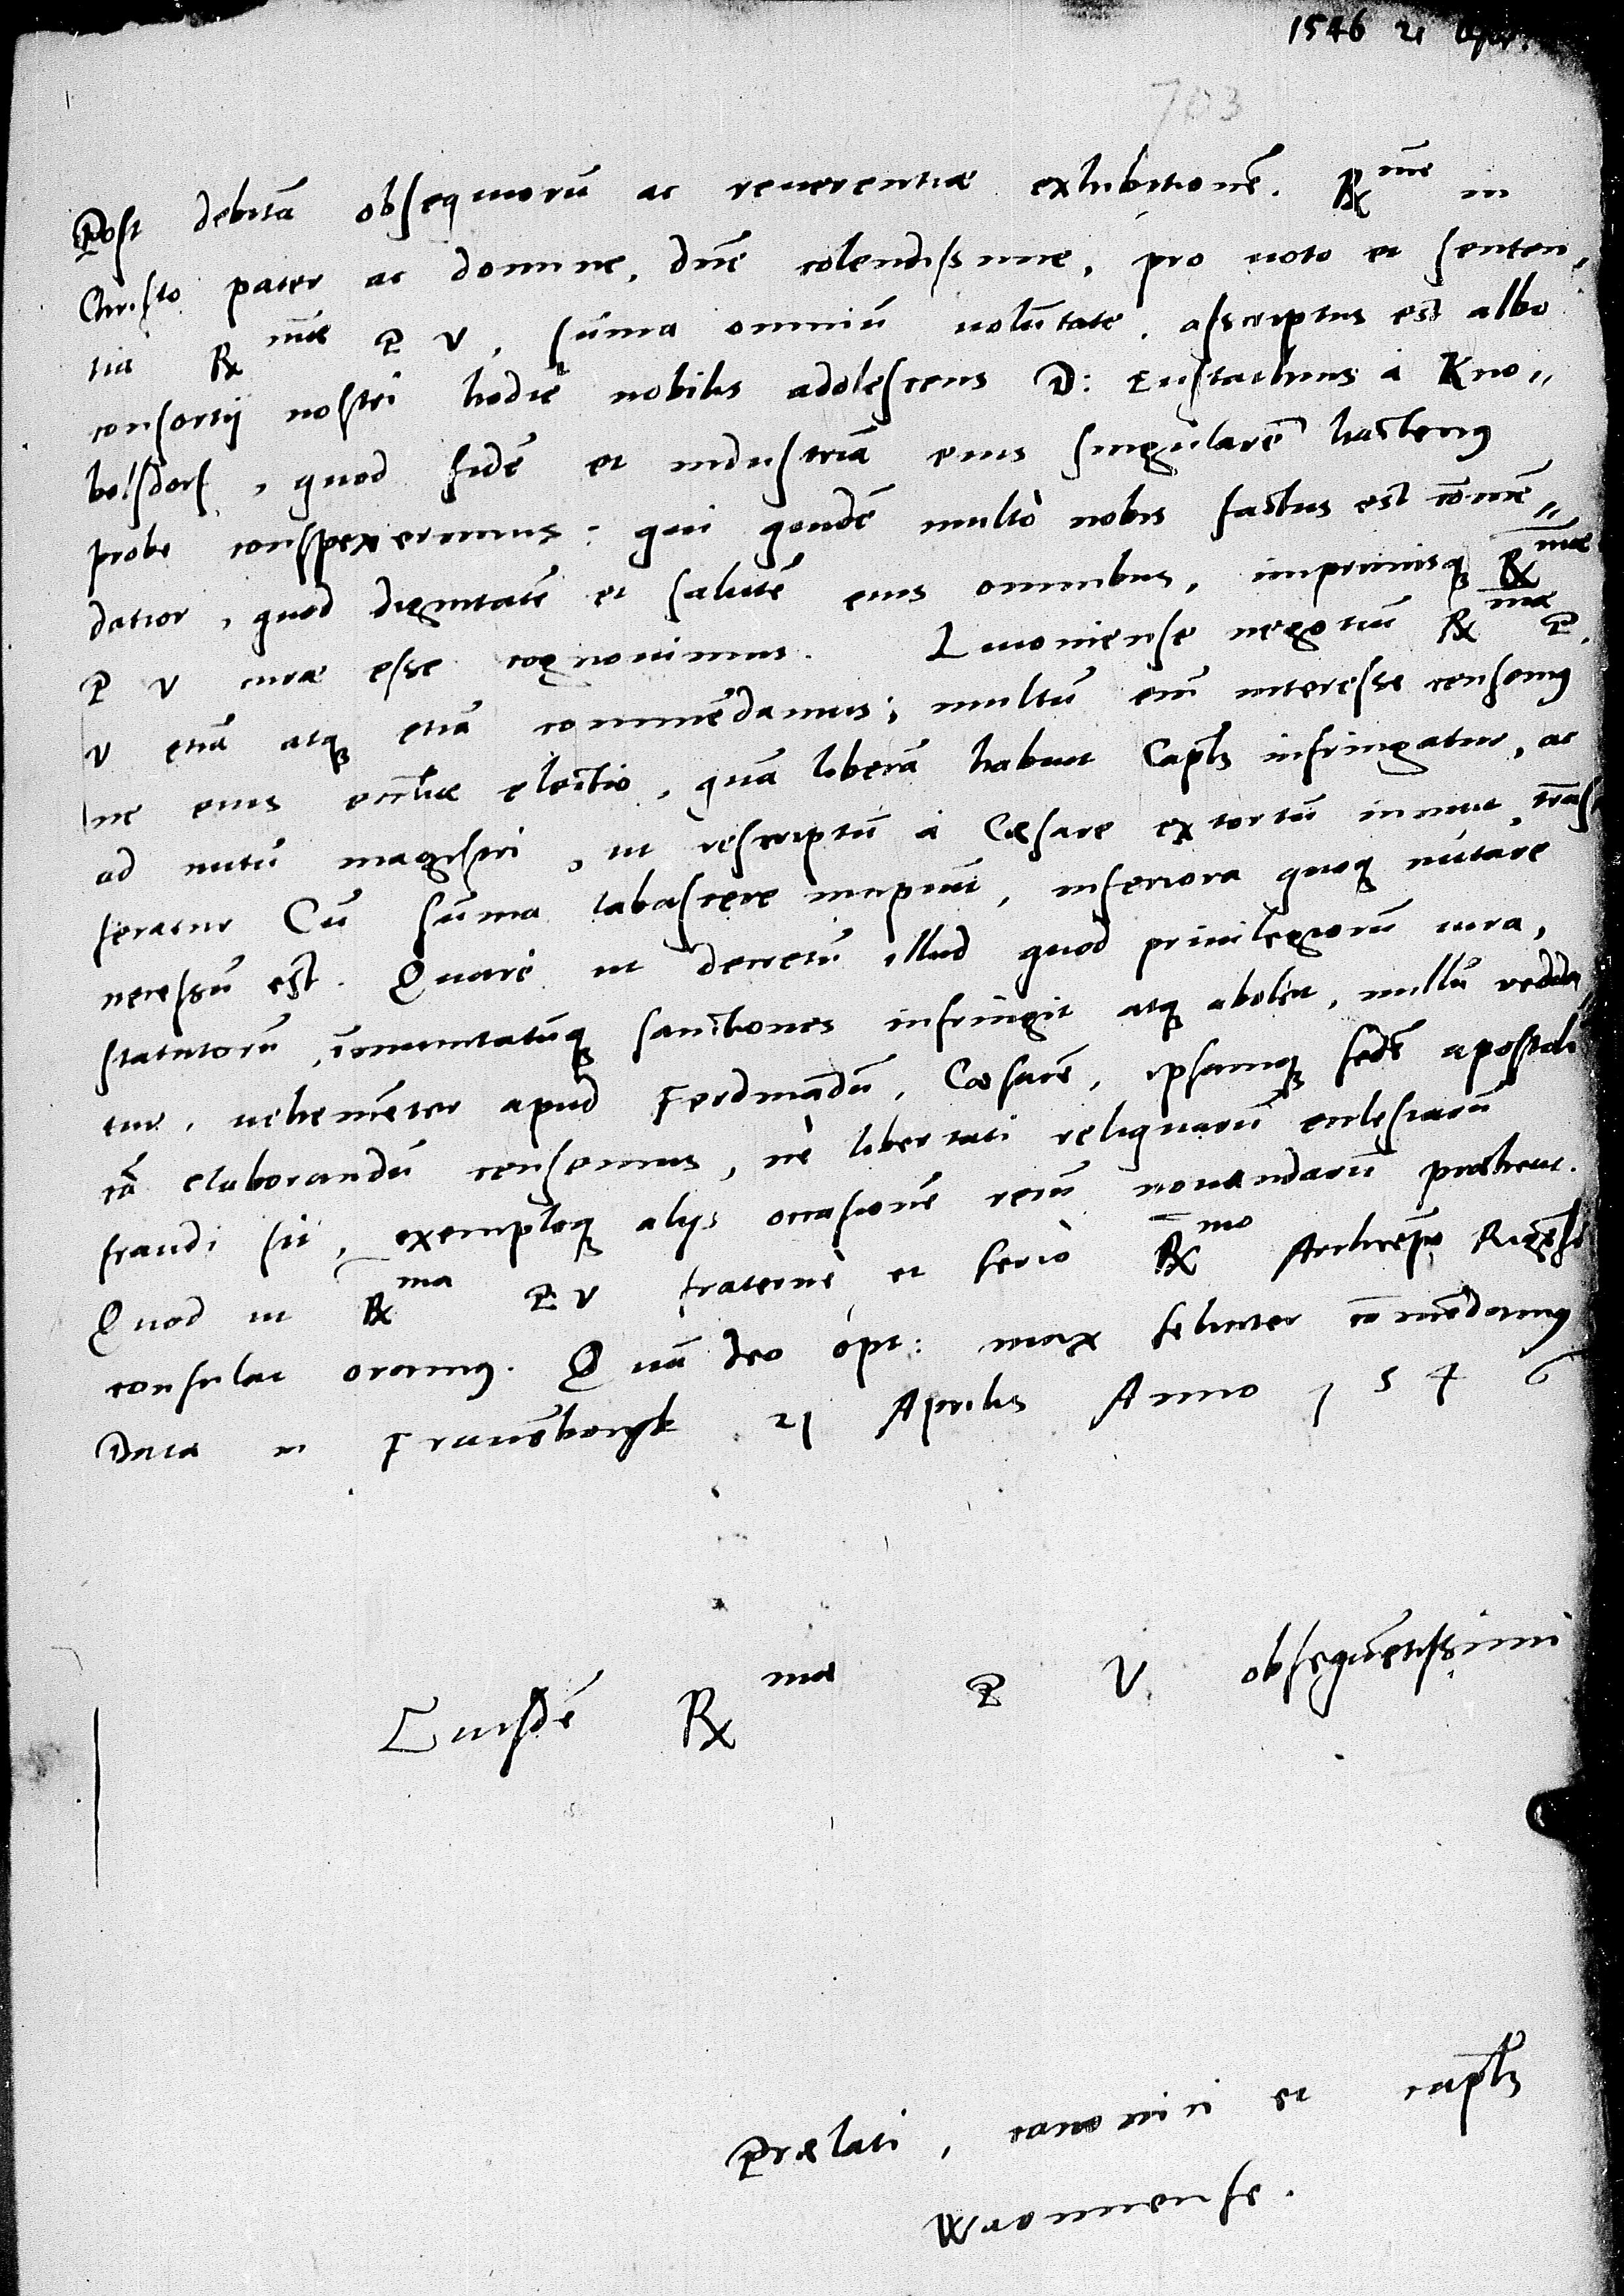 1546 21 Apr.
703
Post debitã obsequiorũ ac reuerentiæ exhibitionẽ. Rme in
Christo pater ac domine, dñe colendissime, pro uoto et senten,
tia Rmæ P V, sũma omniũ uolũtate, asscriptus est albo
consortij nostri hodie nobilis adolescens D: Eustachius à Kno„
belsdorf, quod fidẽ et industriã eius singularẽ hactenus
probe conspexerimus: qui quidẽ multò nobis factus est cõmẽ„
datior, quod dignitatẽ et salutẽ eius omnibus, imprimisq; Rmæ
P V curæ esse cognouimus. Liuoniense negotiũ Rmæ P.
V etiã atq; etiã commẽdamus; multũ enĩ interesse censemus
ne eius eccl̃iæ electio, quã liberã habuit Capl̃m infringatur, ac
ad nutũ magistri, ut rescriptũ à Cæsare extortũ innuit, trãs
feratur Cũ sũma labascere incipiũt, inferiora quoq; nutare
necessũ est. Quare ut decretũ illud quod priuilegiorũ iura,
statutorũ, ĩmunitatũq; sanctiones infringit atq; abolet, nullũ redda
tur, uehemẽter apud Ferdinãdũ, Cæsarẽ, ipsamq; sedẽ apostoli
cã elaborandũ censemus, nè libertati reliquarũ ecclesiarũ
fraudi sit, exemploq; alijs occasionẽ rerũ nouandarũ præbeat.
Quod ut Rma P V fraternè et seriò Rmo Archiep̃o Rigẽsi
consulat oramus. Quã deo opt: max feliciter cõmẽdamus
Data ex Frauẽborgk 21 Aprilis Anno 1546
Eiusdẽ Rmæ P V obsequẽtissimi
Prælati, canonici et capl̃m
Warmiense.